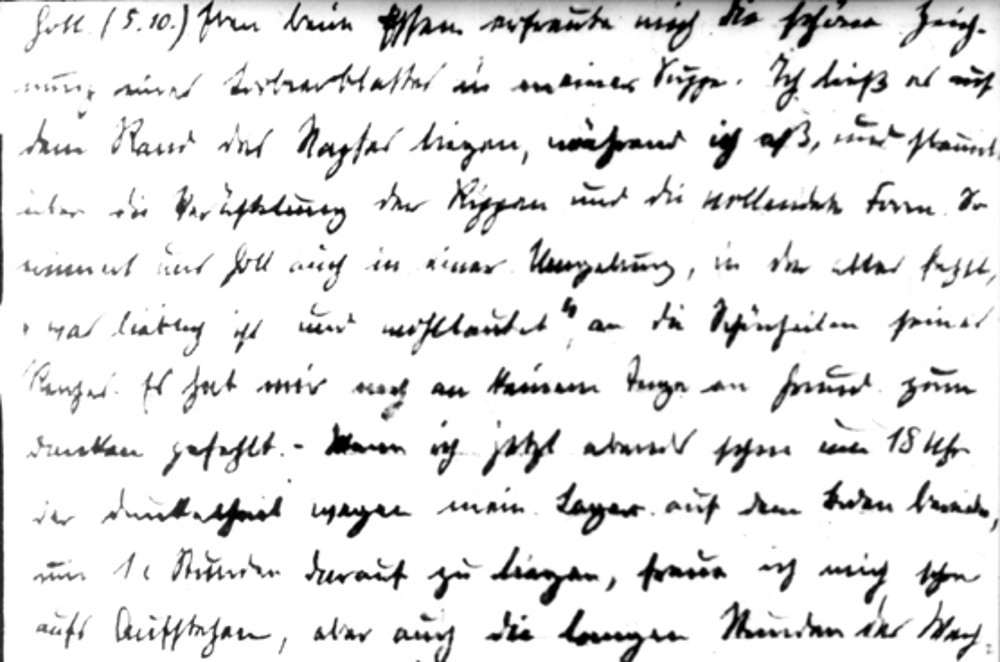 Gott. (5.10.) Eben beim Essen erfreute mich die schöne Zeich-
nung eines Lorbeerblattes in meiner Suppe. Ich ließ es auf
dem Rand des Napfes liegen, während ich aß, und staunte
über die Verästelung der Rippen und die vollendete Form. So
erinnert uns Gott auch in einer Umgebung, in der alles fehlt,
"was lieblich ist und wohllautet", an die Schönheiten seines
Reiches. Es hat mir noch an keinem Tage an Grund zum
danken gefehlt. - Wenn ich jetzt abends schon um 18 Uhr
der Dunkelheit wegen mein Lager auf dem Boden bereite,
um 1 Stunden darauf zu liegen, freue ich mich schon
aufs Aufstehen, aber auch die langen Stunden des Wach-